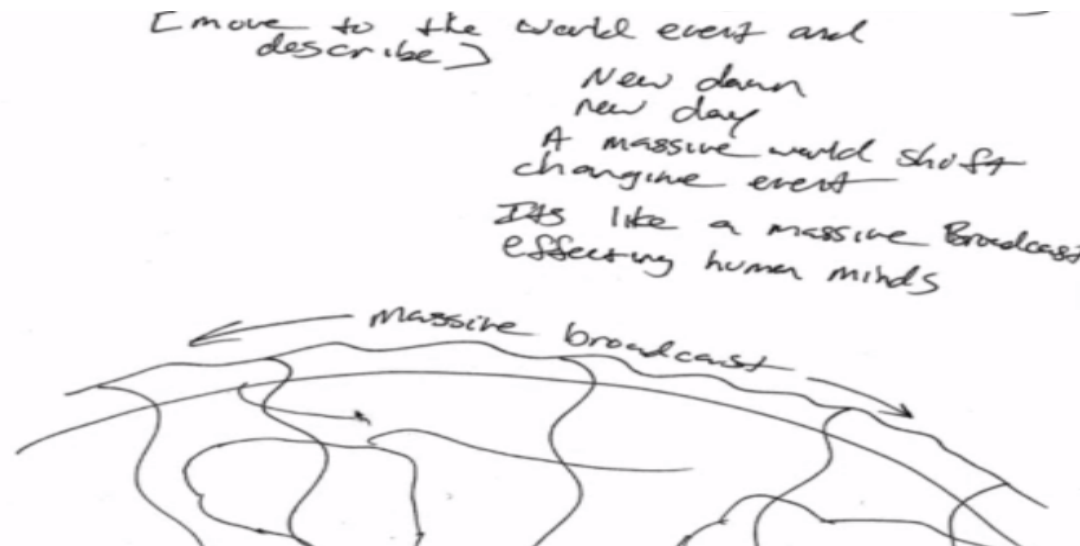 [move to the world event and
describe]
New dawn
new day
A massive world shift
changing event
Its like a massive Broadcast
effecting human minds
massive broadcast